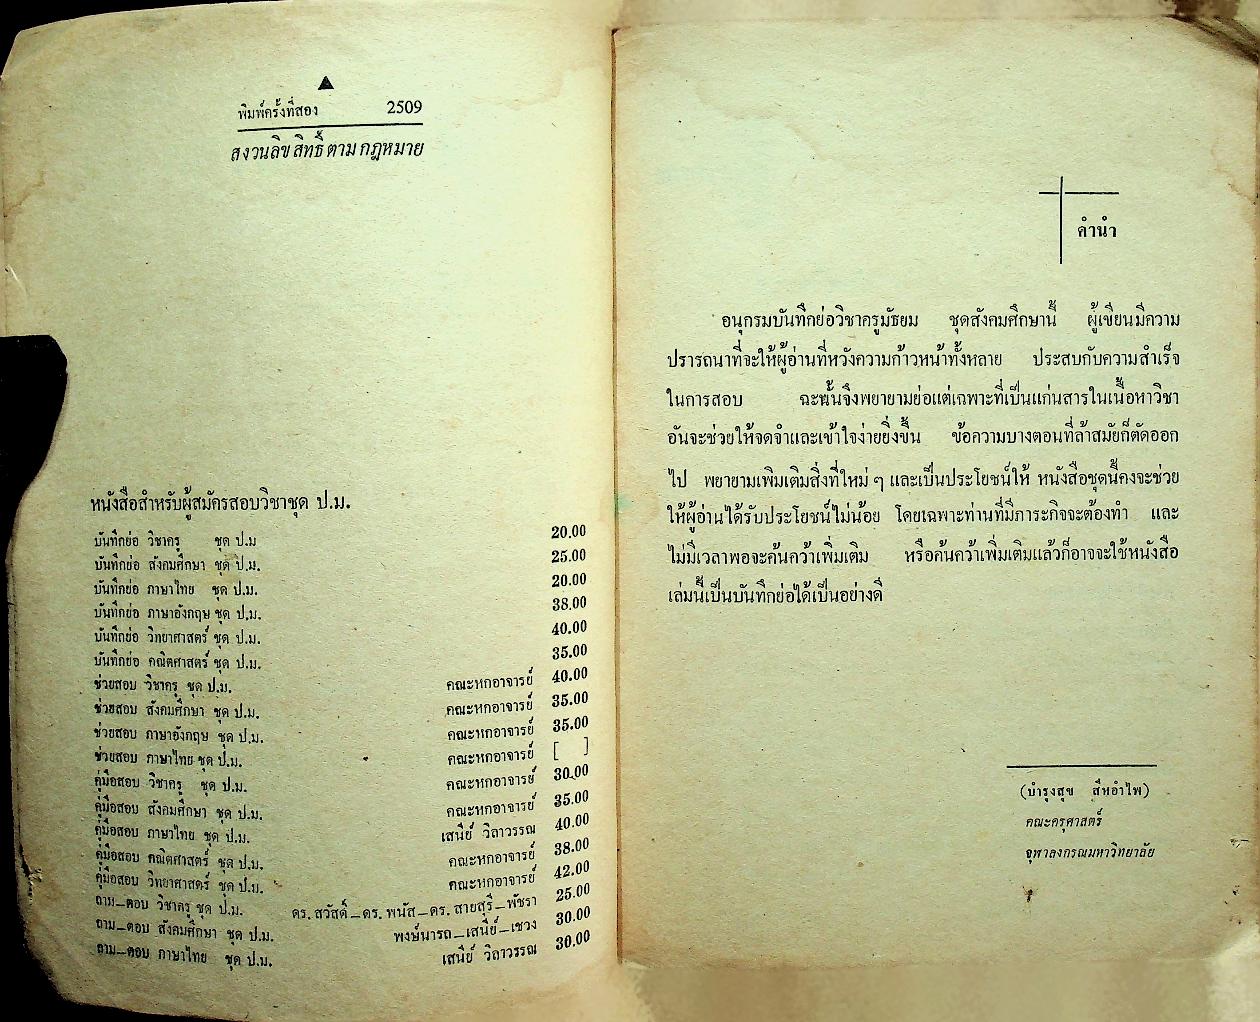 ▲
พิมพ์ครั้งที่สอง 2509
สงวนลิขสิทธิ์ตามกฎหมาย
หนังสือสำหรับผู้สมัครสอบวิชาชุด ป.ม.
บันทึกย่อ วิชาครู ชุด ป.ม 20.00
บันทึกย่อ สังคมศึกษา ชุด ป.ม. 25.00
บันทึกย่อ ภาษาไทย ชุด ป.ม. 20.00
บันทึกย่อ ภาษาอังกฤษ ชุด ป.ม. 38.00
บันทึกย่อ วิทยาศาสตร์ ชุด ป.ม. 40.00
บันทึกย่อ คณิตศาสตร์ ชุด ป.ม. 35.00
ช่วยสอบ วิชาครู ชุด ป.ม. คณะหกอาจารย์ 40.00
ช่วยสอบ สังคมศึกษา ชุด ป.ม. คณะหกอาจารย์ 35.00
ช่วยสอบ ภาษาอังกฤษ ชุด ป.ม. คณะหกอาจารย์ 35.00
ช่วยสอบ ภาษาไทย ชุด ป.ม. คณะหกอาจารย์ [ ]
คู่มือสอบ วิชาครู ชุด ป.ม. คณะหกอาจารย์ 30.00
คู่มือสอบ สังคมศึกษา ชุด ป.ม. คณะหกอาจารย์ 35.00
คู่มือสอบ ภาษาไทย ชุด ป.ม. เสนีย์ วิลาวรรณ 40.00
คู่มือสอบ คณิตศาสตร์ ชุด ป.ม. คณะหกอาจารย์ 38.00
คู่มือสอบ วิทยาศาสตร์ ชุด ป.ม. คณะหกอาจารย์ 42.00
ถาม–ตอบ วิชาครู ชุด ป.ม. ดร. สวัสดิ์–ดร. พนัส–ดร. สายสุรี–พัชรา 25.00
ถาม–ตอบ สังคมศึกษา ชุด ป.ม. พงษ์นารถ–เสนีย์–เชวง 30.00
ถาม–ตอบ ภาษาไทย ชุด ป.ม. เสนีย์ วิลาวรรณ 30.00
คำนำ
อนุกรมบันทึกย่อวิชาครูมัธยม ชุดสังคมศึกษานี้ ผู้เขียนมีความ
ปรารถนาที่จะให้ผู้อ่านที่หวังความก้าวหน้าทั้งหลาย ประสบกับความสำเร็จ
ในการสอบ ฉะนั้นจึงพยายามย่อแต่เฉพาะที่เป็นแก่นสารในเนื้อหาวิชา
อันจะช่วยให้จดจำและเข้าใจง่ายยิ่งขึ้น ข้อความบางตอนที่ล้าสมัยก็ตัดออก
ไป พยายามเพิ่มเติมสิ่งที่ใหม่ ๆ และเป็นประโยชน์ให้ หนังสือชุดนี้คงจะช่วย
ให้ผู้อ่านได้รับประโยชน์ไม่น้อย โดยเฉพาะท่านที่มีภาระกิจจะต้องทำ และ
ไม่มีเวลาพอจะค้นคว้าเพิ่มเติม หรือค้นคว้าเพิ่มเติมแล้วก็อาจจะใช้หนังสือ
เล่มนี้เป็นบันทึกย่อได้เป็นอย่างดี
(บำรุงสุข สีหอำไพ)
คณะครุศาสตร์
จุฬาลงกรณมหาวิทยาลัย